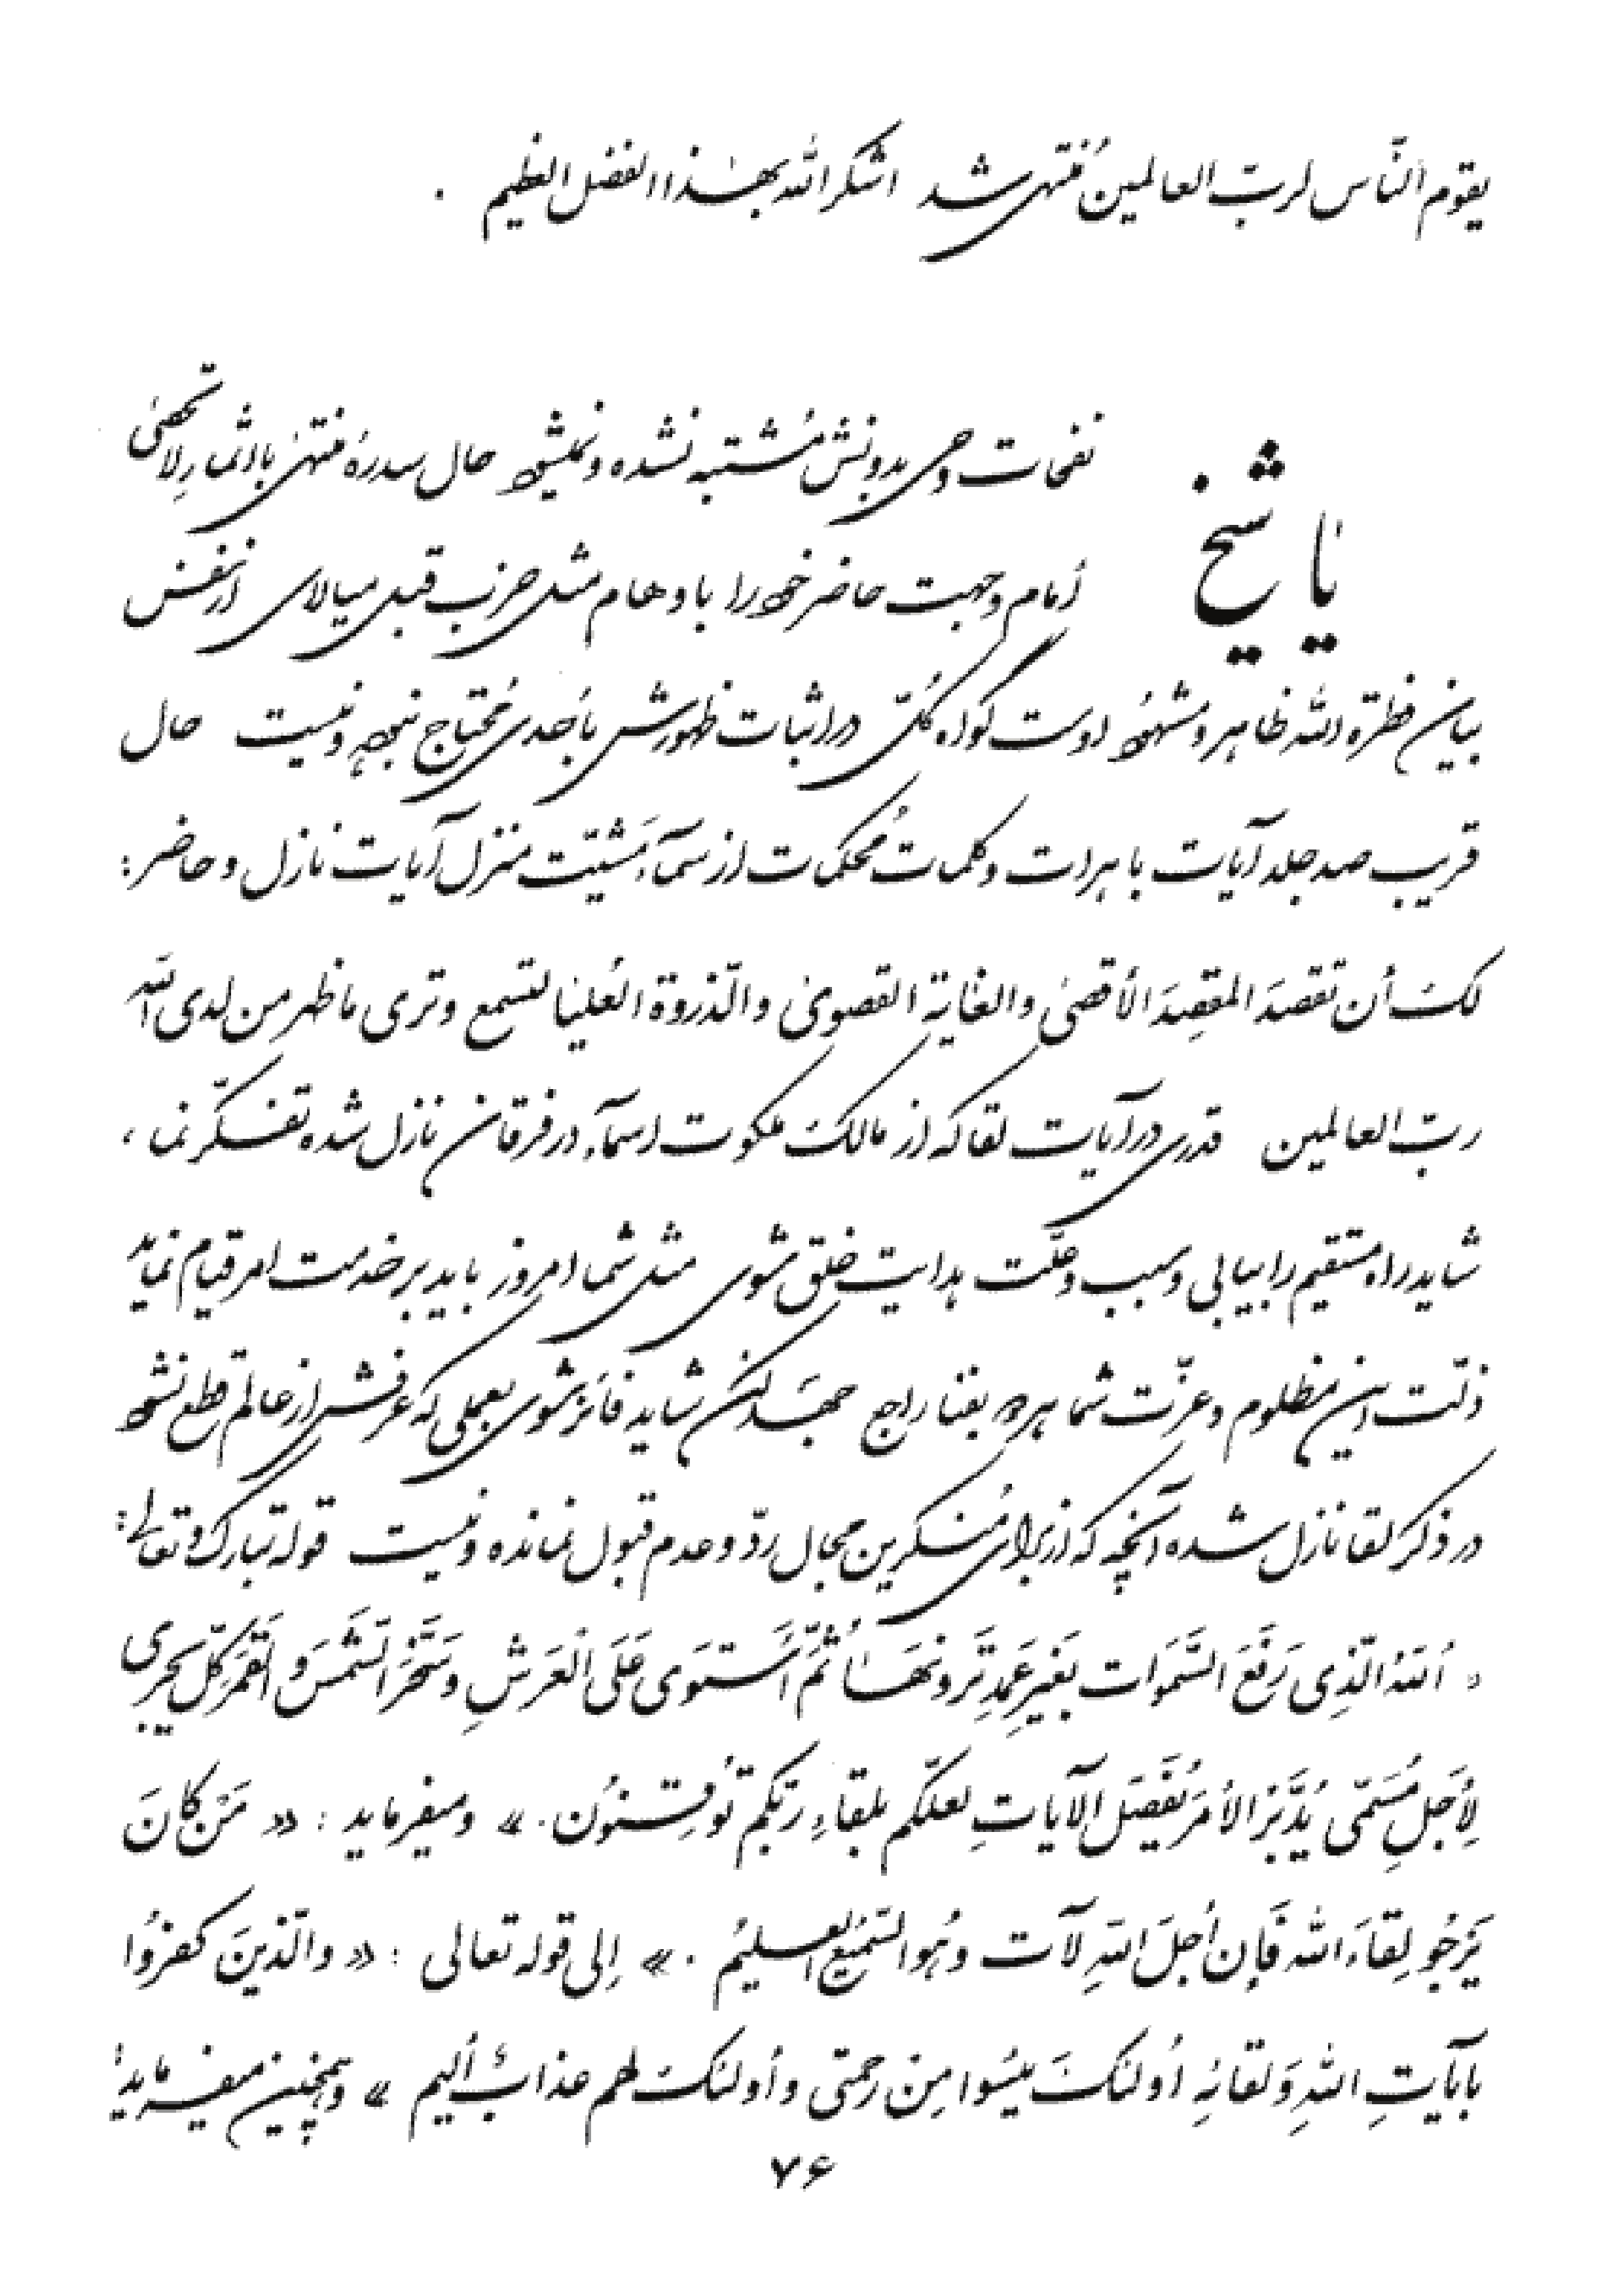 يقوم النّاس لربّ العالمين مُنتهی شد اشکر الله بهذا الفضل العظيم .
يا شيخ
نفحات وحی بدونش مُشتبه نشده و نميشود حال سدرهٔ منتهی با اثمار لا تحصیٰ
أمام وجهت حاضر خود را باوهام مثل حزب قبل ميالای از نفس
بيان فطرة الله ظاهر و مشهود اوست گواه کُلّ در اثبات ظهورش بأحدی مُحتاج نبوده و نيست حال
قريب صد جلد آيات باهرات و کلمات مُحکمات از سمآء مَشيّت منزل آيات نازل و حاضر :
لک أن تقصدَ المقصِدَ الأقصیٰ والغاية القصویٰ والذّروة العُليا لتسمع وتری ما ظهر من لدی الله
ربّ العالمين قدری در آيات لقا که از مالک ملکوت اسمآء در فرقان نازل شده تفکّر نما ،
شايد راه مستقيم را بيابی و سبب و علّت هدايت خلق شوی مثل شما امروز بايد بر خدمت امر قيام نمايد
ذلّت اين مظلوم و عزّت شما هر دو بفنا راجع جهد کن شايد فائز شوی بعملی که عرفش از عالم قطع نشود
در ذکر لقا نازل شده آنچه که از برای مُنکرين مجال ردّ و عدم قبول نمانده و نيست قوله تبارک و تعالی :
« اَللهُ الّذِی رَفَعَ السَّمَوَات بِغَيرِ عَمَدٍ تَرَونَهَا ثُمَّ اَستَوَی عَلَی الْعَرَشِ وَسَخَّرَ الشَّمسَ وَ القَمَرَ کُلّ يَجرِی
لِأَجَلٍ مُسَمّی يُدَبِّرُ الأمرَ يُفَصّلُ الآياتِ لعلّکم بلقاءِ ربّکم تُوقِنُون. » و ميفرمايد : « مَنْ کَانَ
يَرْجُو لِقاءَ الله فَإن أجلَ اللهِ لآت وهُو السّميعُ العليمُ . » إلی قوله تعالی : « والّذينَ کفروُا
بآياتِ اللهِ وَلقائهِ اُولئکَ يئِسُوا مِن رَحمتی وأولئکَ لهم عذابٌ أليم » وهمچنين ميفرمايد :
۷۶